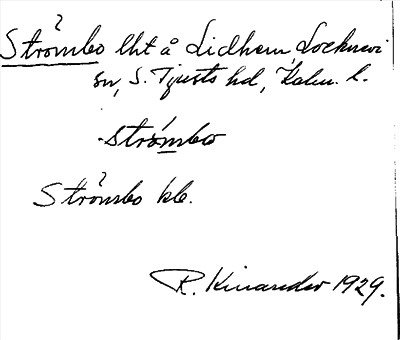 Strömbo lht å Lidhem, Locknevi
sn, S. Tjusts hd, Kalm. l.
strömbo
Strömbo kb.
R. Kinander 1929.